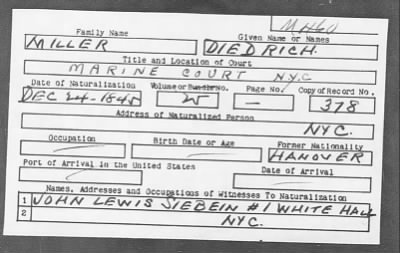 M460
Family Name Given Name or Names
MILLER DIEDRICH
Title and Location of Court
MARINE COURT N.Y.C
Date of Naturalization Volume or Bundle No. Page No. Copy of Record No.
DEC 24-1845 25 — 378
Address of Naturalized Person
NYC.
Occupation Birth Date or Age Former Nationality
HANOVER
Port of Arrival in the United States Date of Arrival
Names, Addresses and Occupations of Witnesses To Naturalization
1 JOHN LEWIS SIEBEIN #1 WHITE HALL
2 NYC.